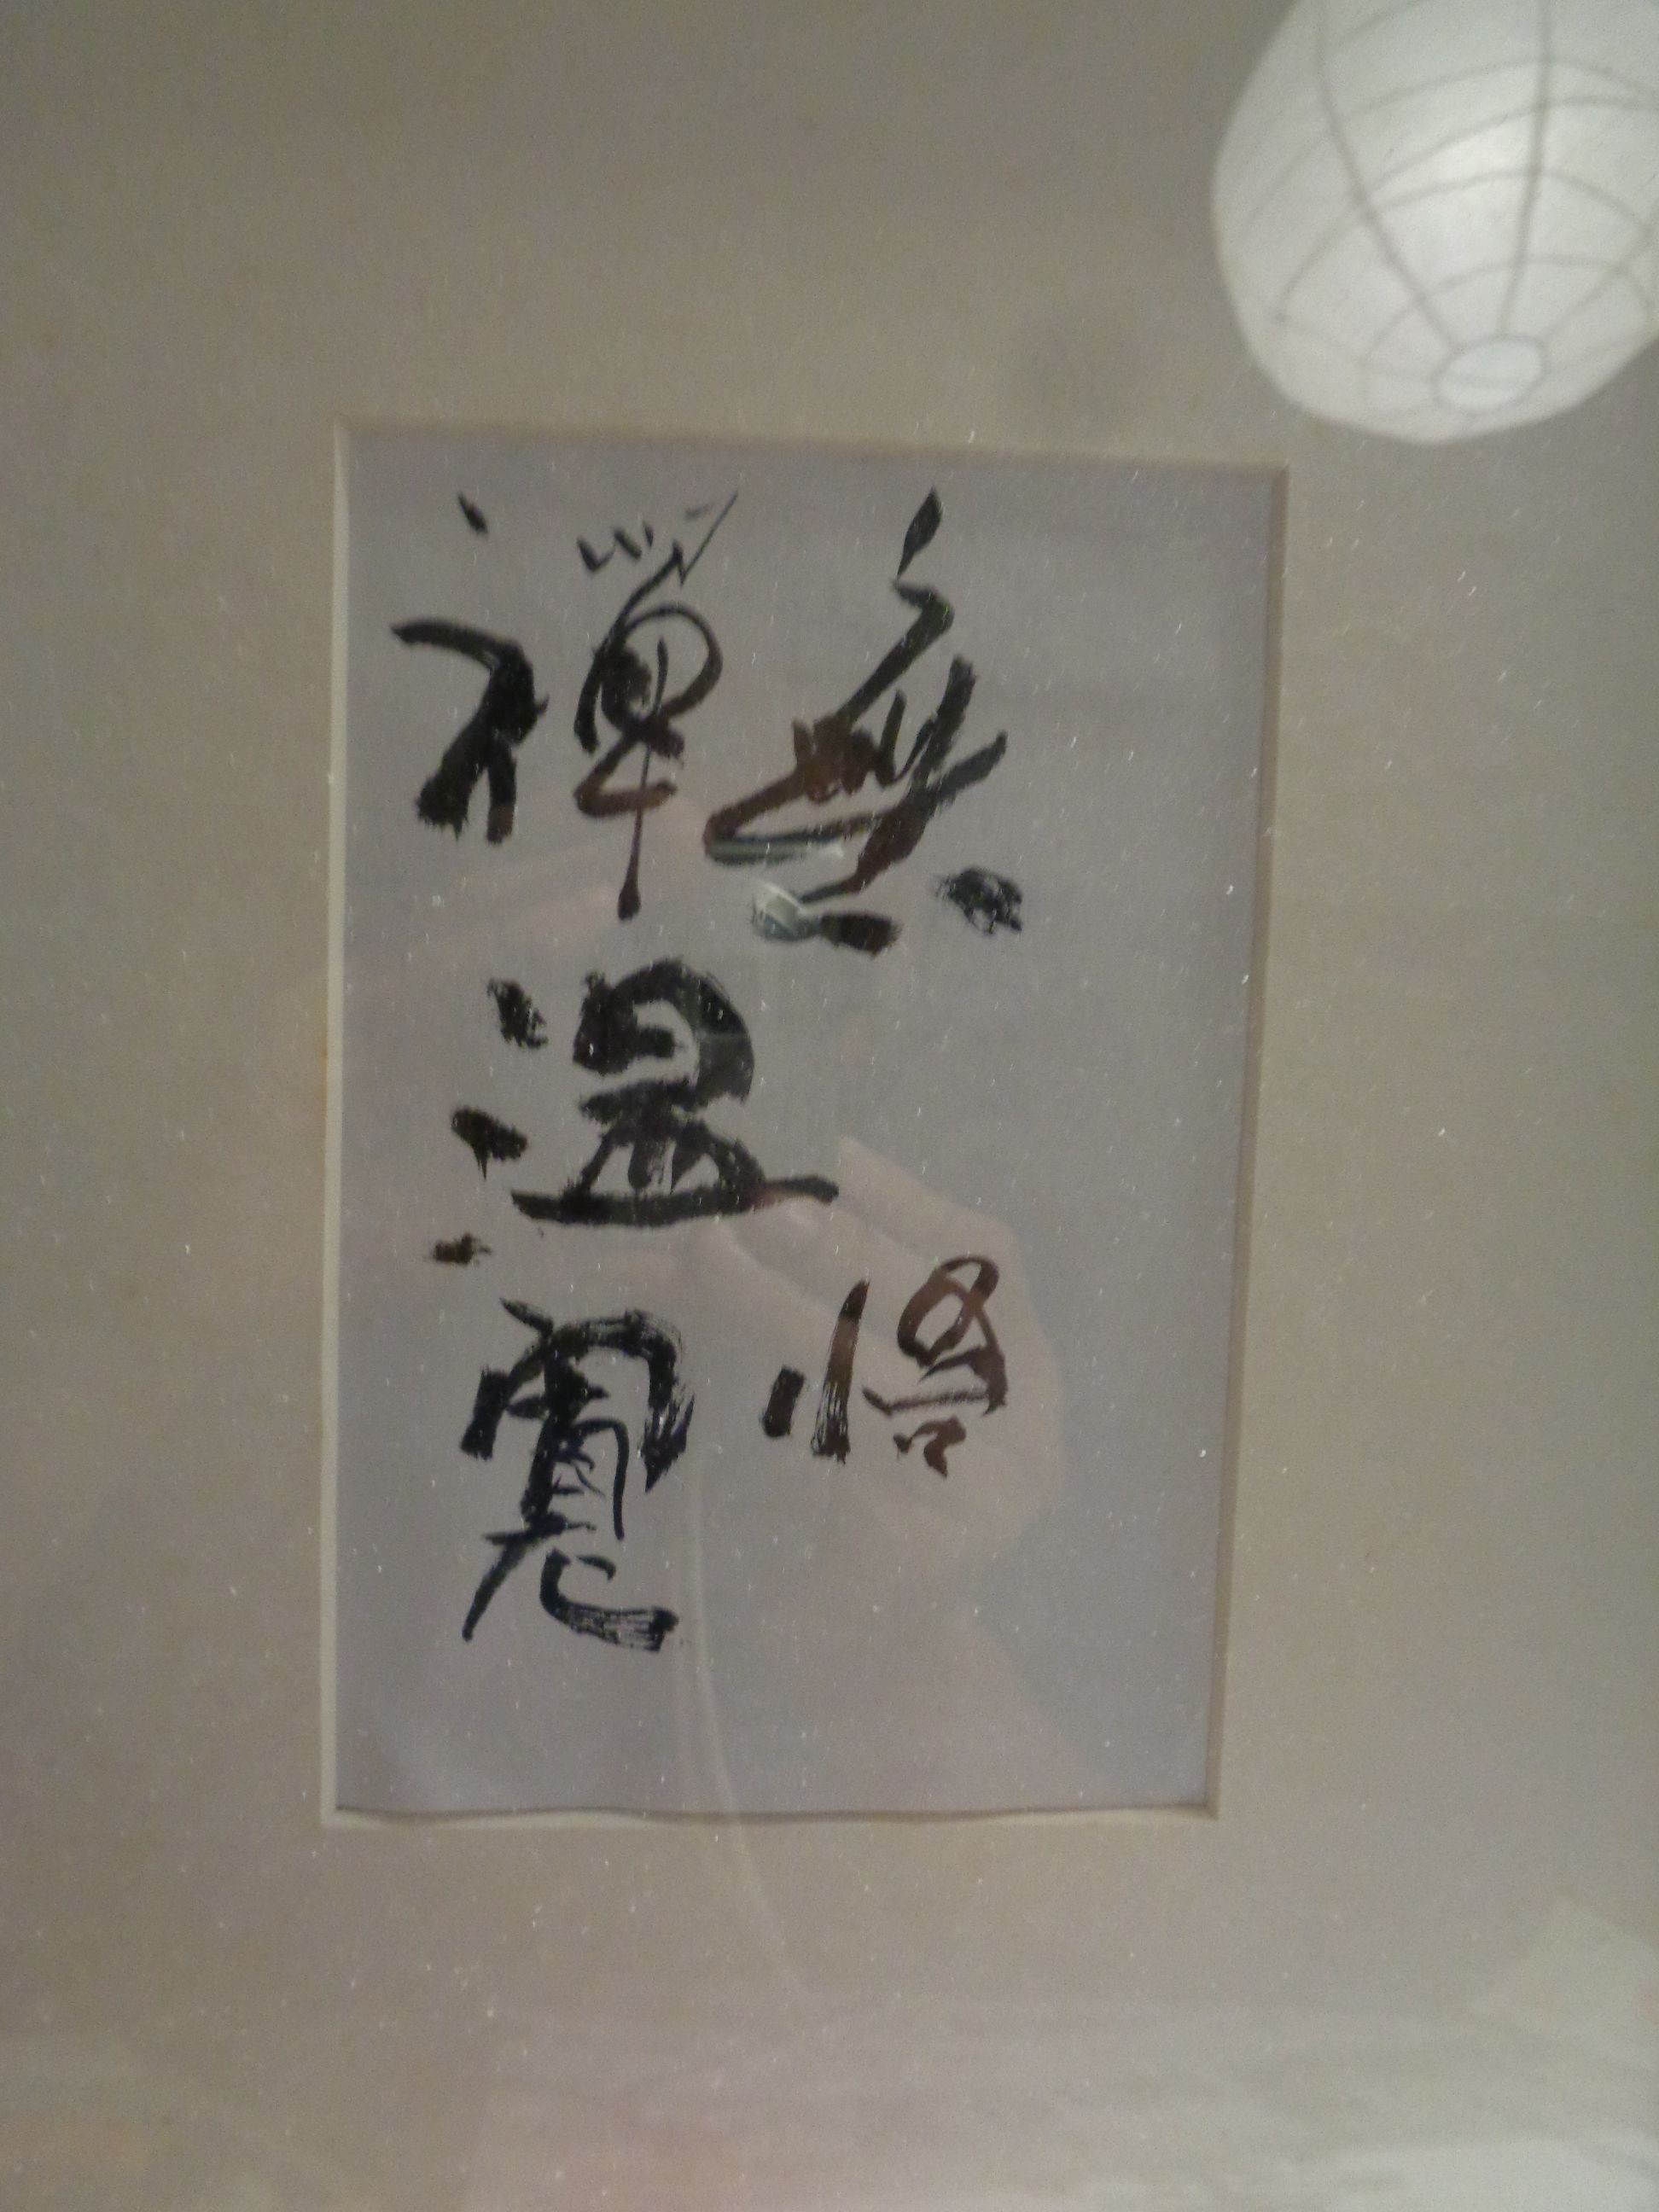 無悟
禅温寛